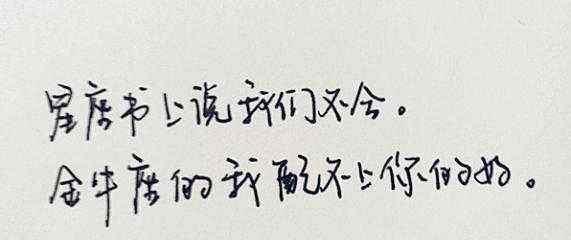 星座书上说我们不合。
金牛座的我配不上你的好。